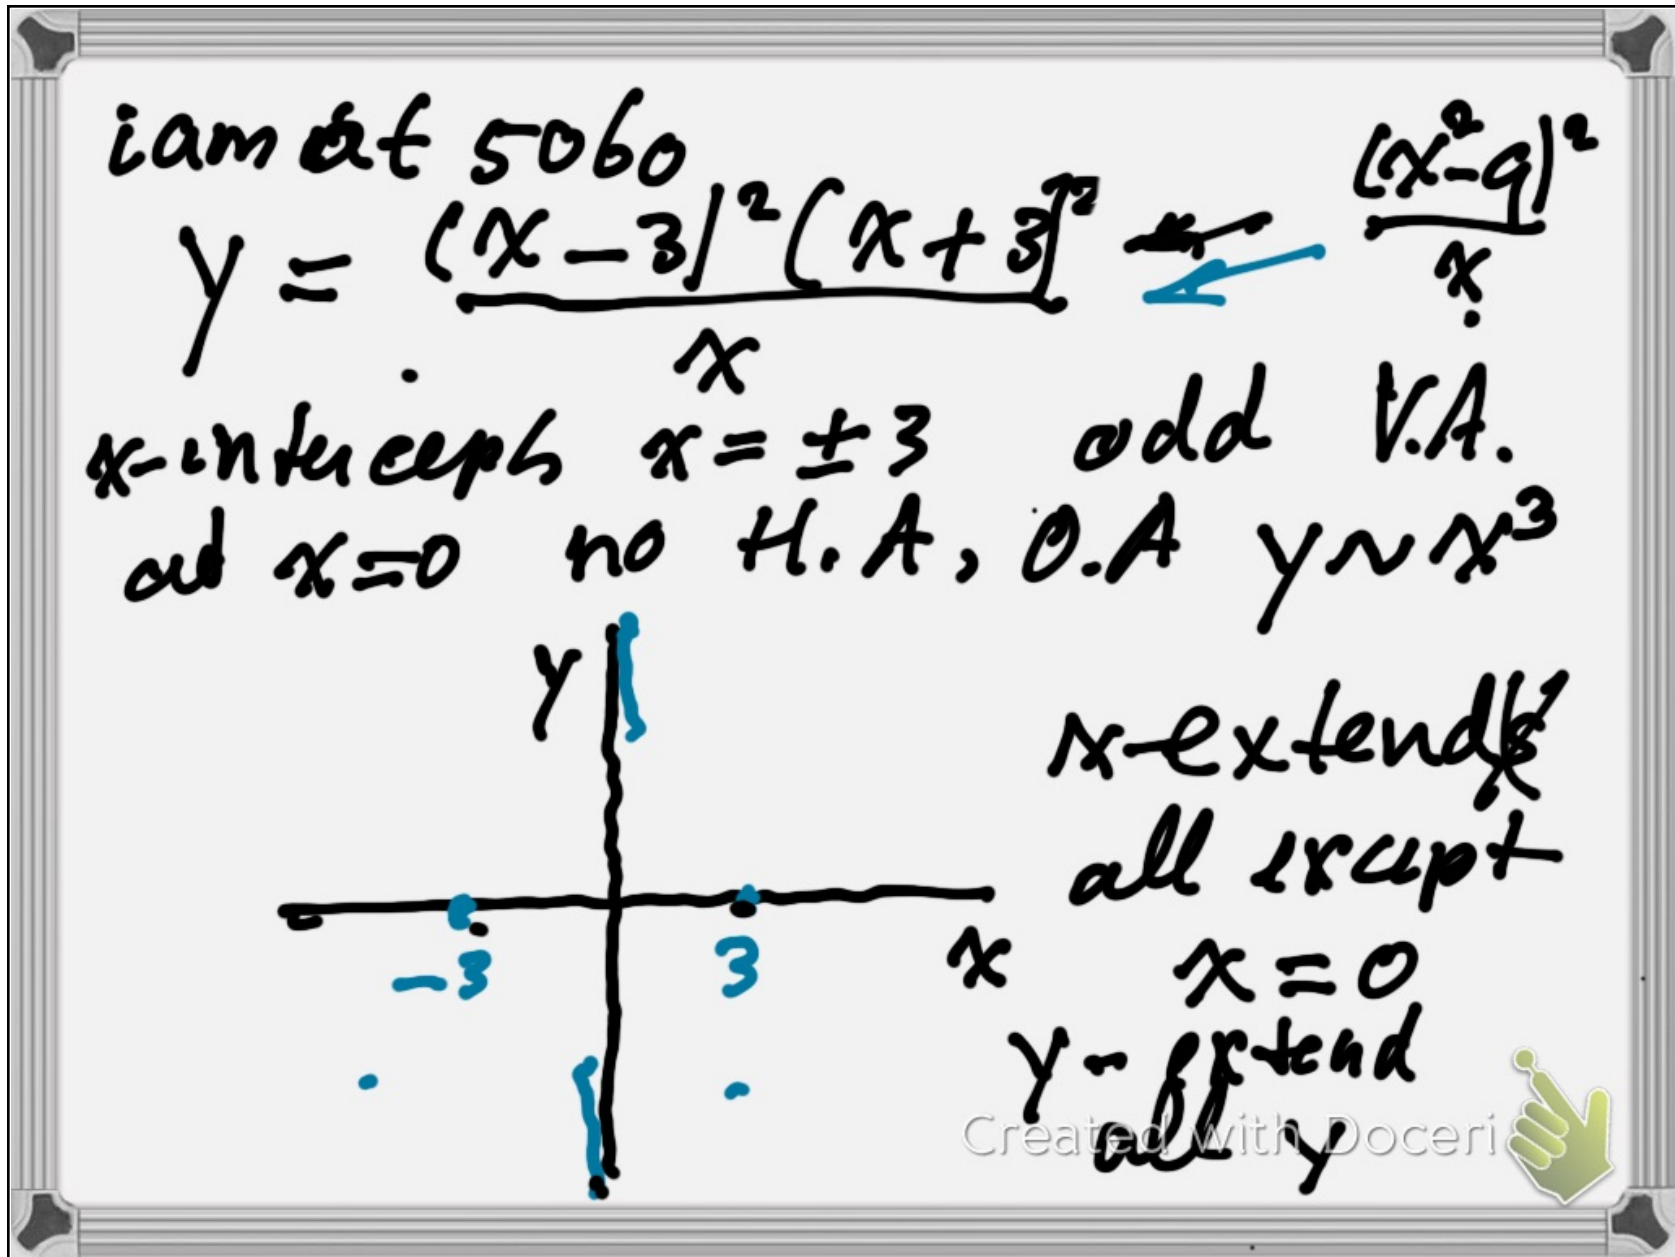 i am at 5060
y = (x-3)²(x+3)² / x ← (x²-9)² / x
x-intercepts x = ±3 odd V.A.
at x=0 no H.A, O.A y~x³
y
x-extend
all except
-3 3 x x=0
y-extend
all y
Created with Doceri